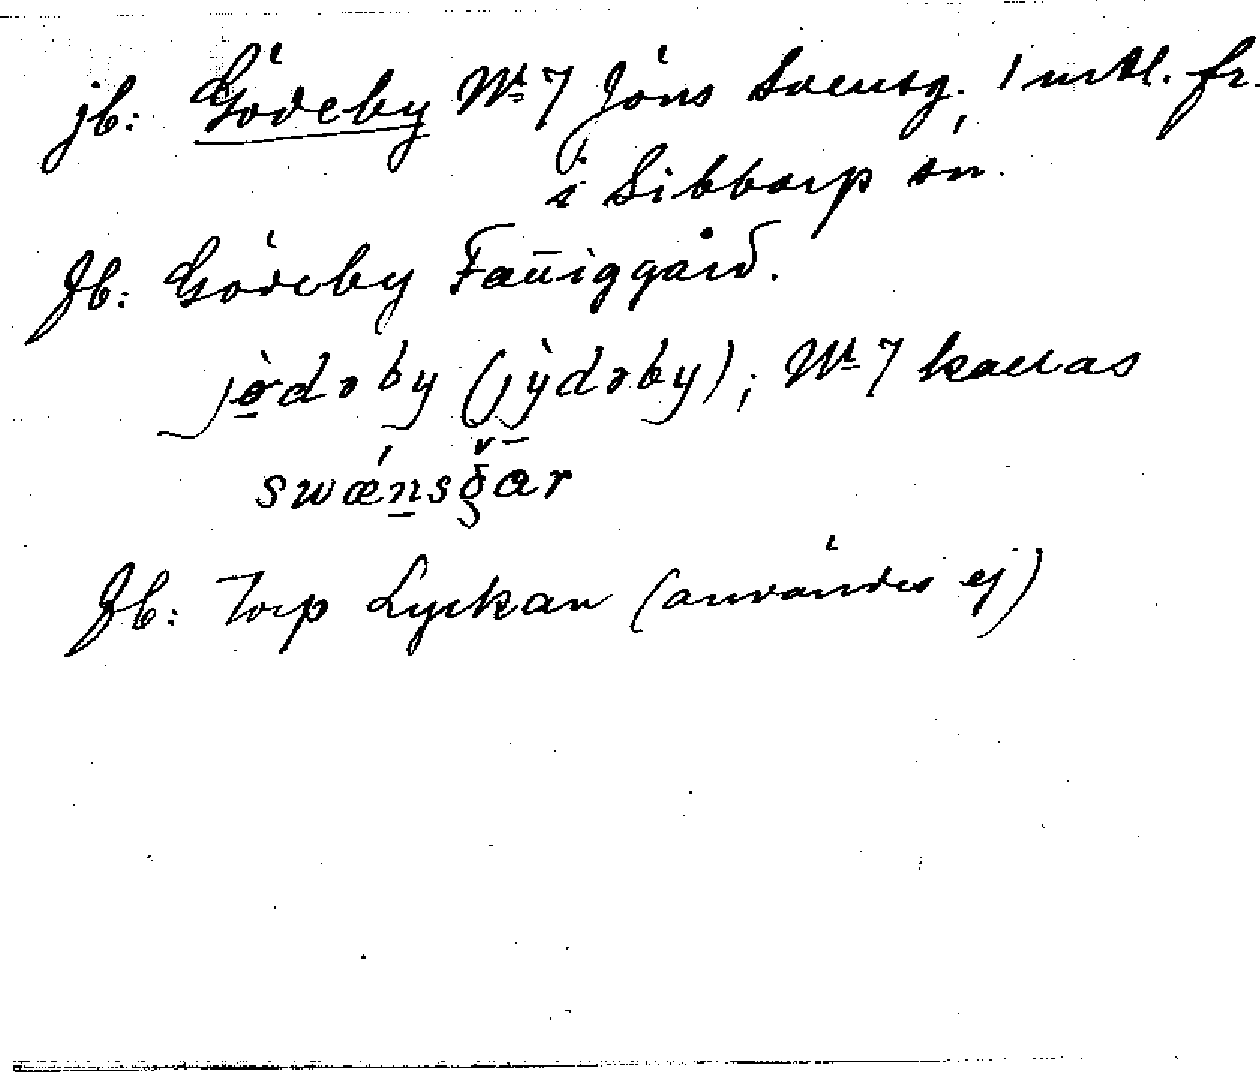 jb: Gödeby Nr 7 Jöns Svensg. 1 mtl. fr.
i Sibbarp sn.
Jb: Gödeby Fattiggård.
jø̀dəby (jỳdəby); Nr 7 kallas
swǽnsgār
Jb: Torp Lyckan (användes ej)